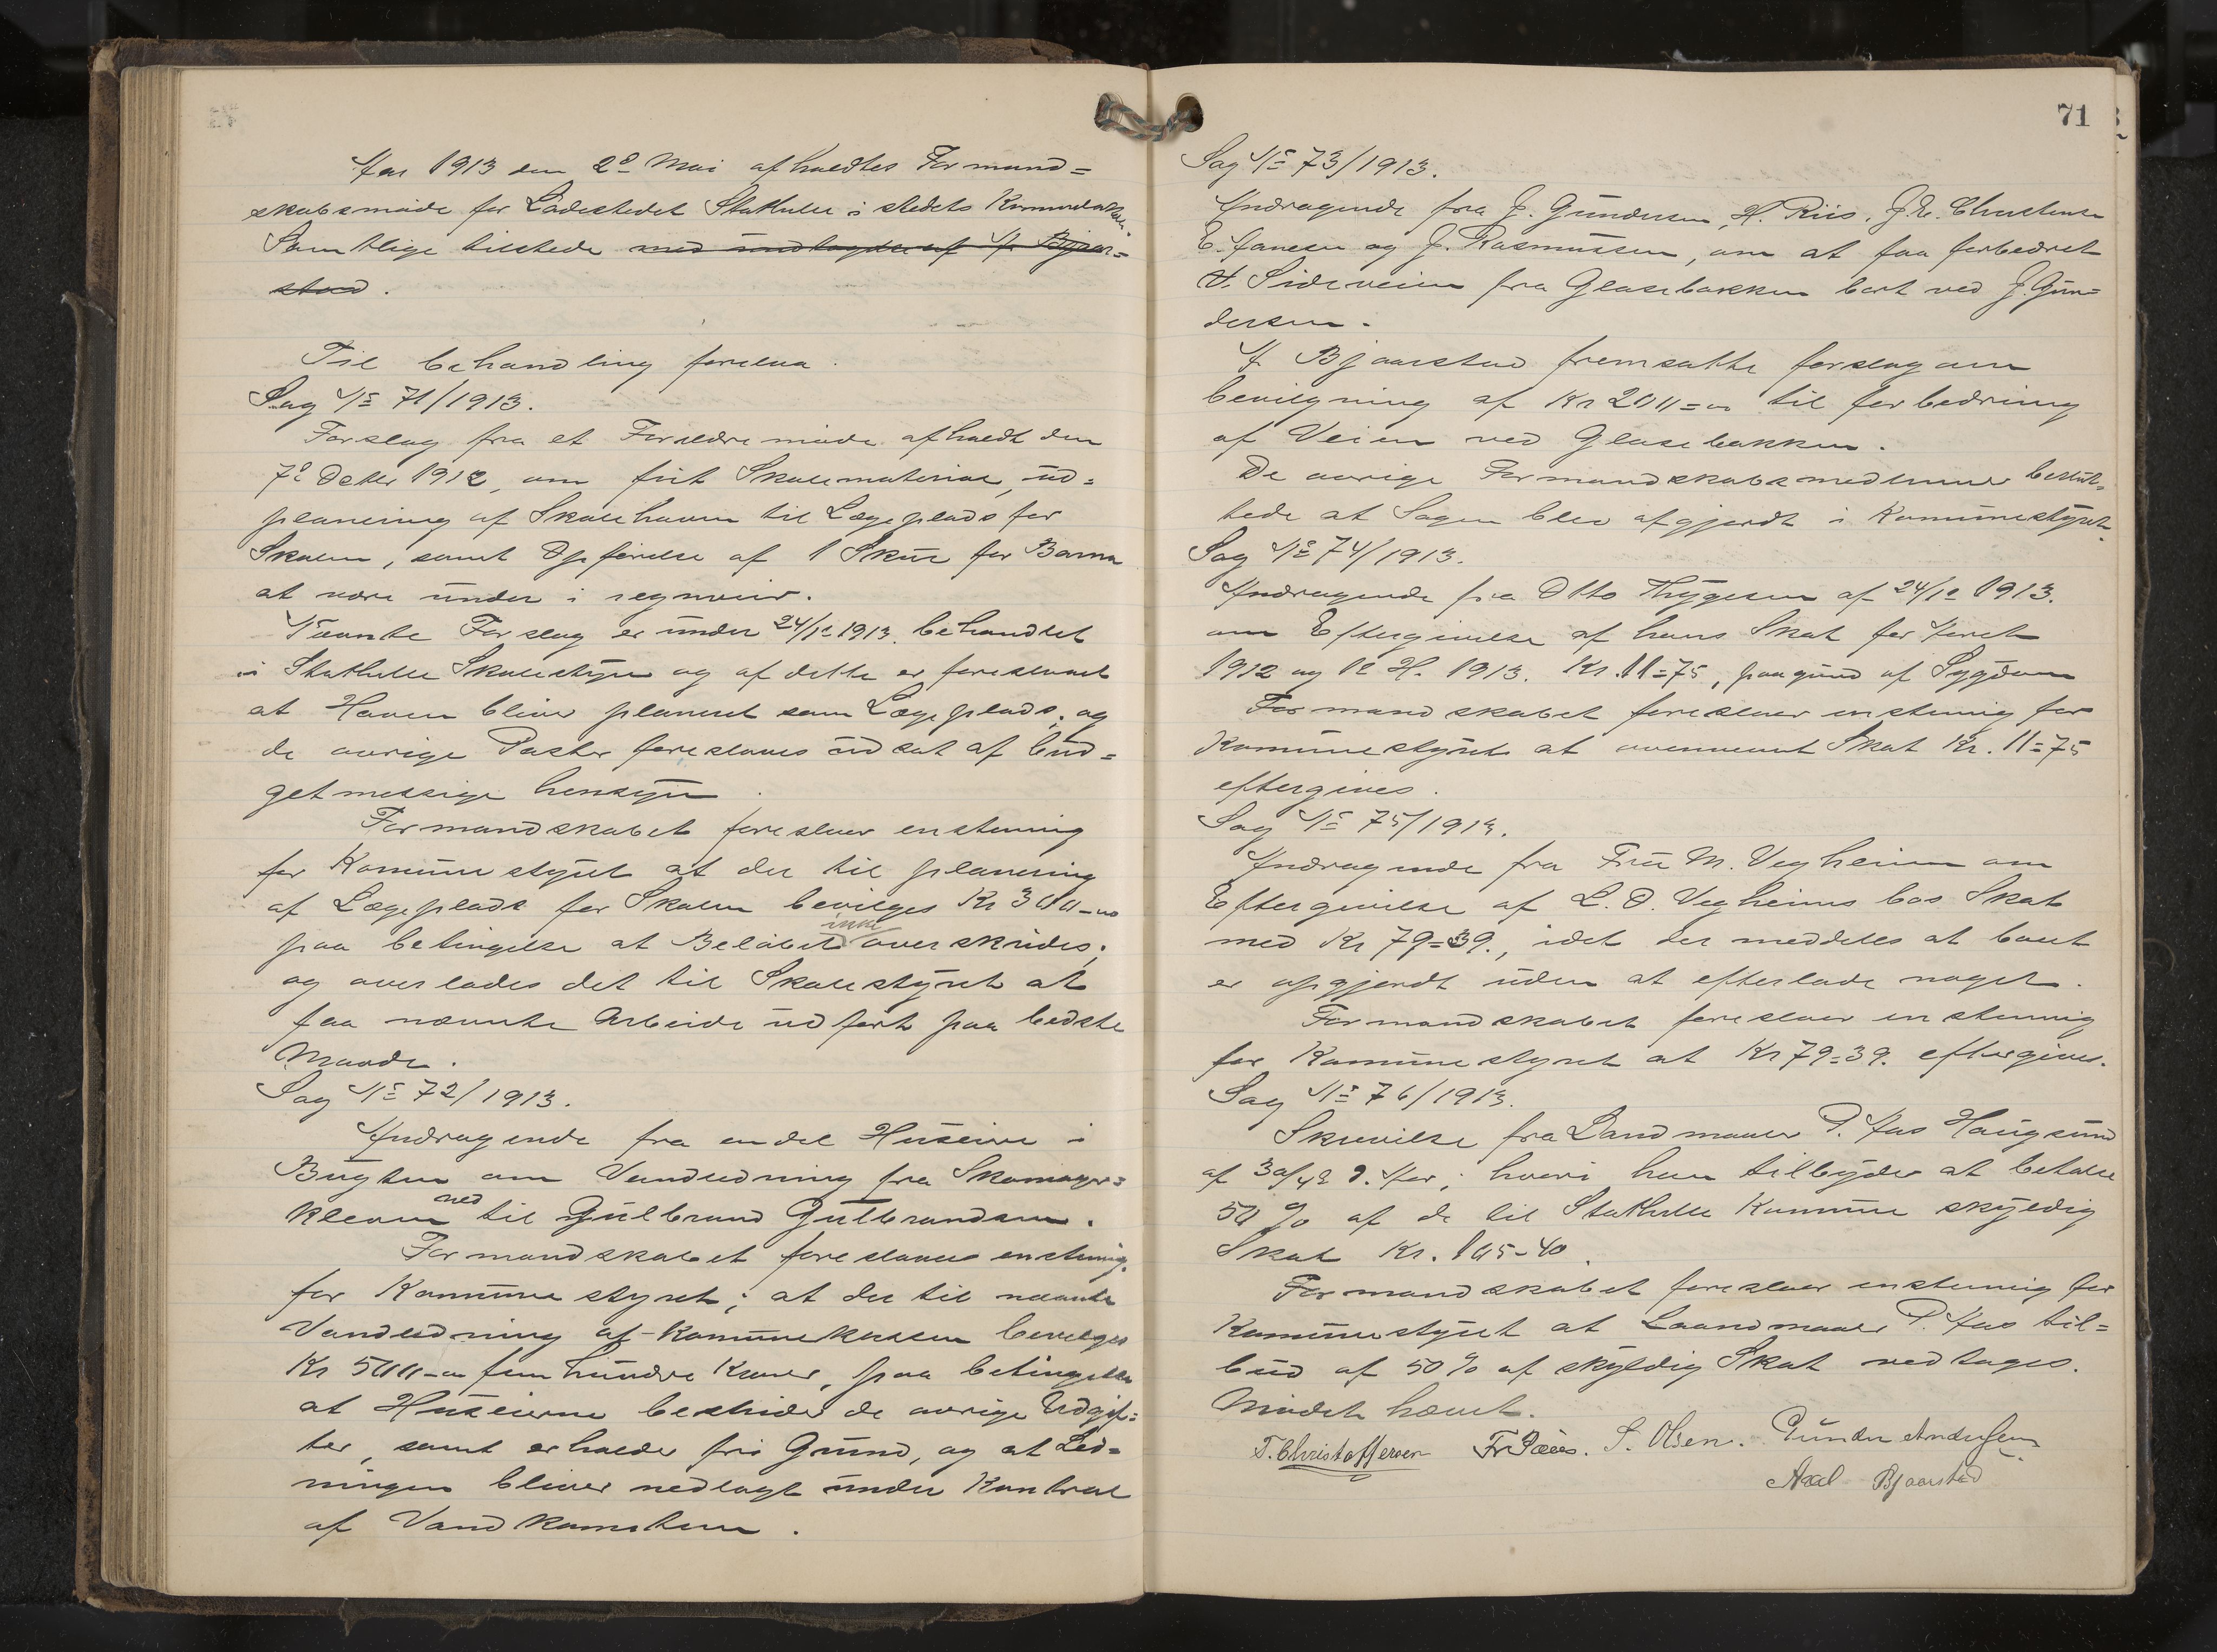 Aar 1913 den 2º Mai afholdtes Formand=
skabsmøde for Ladestedet Stathelle i stedets Kommunelokale.
Samtlige tilstede med undtagelse af A. Bjaar=
stad.
Til behandling forelaa.
Sag Nº 71/1913.
Forslag fra et Forældremøde afholdt den
7º Octbr 1912, om frit Skolemateriæl, ud=
planering af Skolehaven til Legeplads for
Skolen, samt Opførelse af 1 Skur for Barna
at være under i regnveir.
Nævnte Forslag er under 24/1º 1913. behandlet
i Stathelle Skolestyre og af dette er foreslaaet
at Haven bliver planeret som Legeplads; og
de øvrige Poster foreslaaes udsat af bud=
getmessige hensyn.
Formandskabet foreslaar enstemig
for Komunestyret at der til planering
af Legeplads for Skolen bevilges Kr 300-00
paa betingelse at Beløbet inke overskrides;
og overlades det til Skolestyret at
faa nævnte Arbeide udført paa bedste
Maade.
Sag Nº 72/1913.
Andragende fra endel Huseiere i
Bugten om Vandledning fra Skomager=
kleven ned til Gulbrand Gulbrandsen.
Formandskabet foreslaaes enstemig.
for Kommunestyret; at der til nævnte
Vandledning af Komunekassen bevilges
Kr 500-00 fem hundre Kroner, paa betingelse
at Huseierne bestrider de øvrige Udgif=
ter, samt erholder fri Grund, og at Led=
ningen bliver nedlagt under Kontrol
af Vandkomiteen.
71
Sag Nº 73/1913.
Andragende fra J. Gundersen, H. Riis, J. Chr. Christensen
E. Jansen og J. Rasmussen, om at faa forbedret
Sideveien fra Glasebakken bort ved J. Gun=
dersen.
A. Bjaarstad fremsatte forslag om
bevilgning af Kr 200=00 til forbedring
af Veien ved Glasebakken.
De øvrige Formandskabsmedlemmer beslut=
tede at Sagen blev afgjordt i Komunestyret.
Sag Nº 74/1913.
Andragende fra Otto Thygesen af 24/1º 1913.
om Eftergivelse af hans Skat for Aaret
1912 og 1ª H. 1913. Kr. 11=75, paagrund af Sygdom
Formandskabet foreslaar enstemig for
Komunestyret at ovennævnt Skat Kr. 11=75
eftergives.
Sag Nº 75/1913.
Andragende fra Fru M. Vegheim om
Eftergivelse af L. O. Vegheims bos Skat
med Kr 79=39., idet der meddeles at boet
er opgjordt uden at efterlade noget.
Formandskabet foreslaar enstemig
for Komunestyret at Kr 79=39. eftergives.
Sag Nº 76/1913.
Skrivelse fra Landmaaler P. Aas Haugsund
af 30/4º d. Aar; hvori han tilbyder at betale
50 % af de til Stathelle Komune skyldig
Skat Kr. 105-40.
Formandskabet foreslaar enstemig for
Komunestyret at Laandmaaler P. Aas til=
bud af 50% af skyldig Skat vedtages.
Mødet hævet.
T. Christoffersen S. Olsen. Gunder Andersen
Axel Bjaarstad